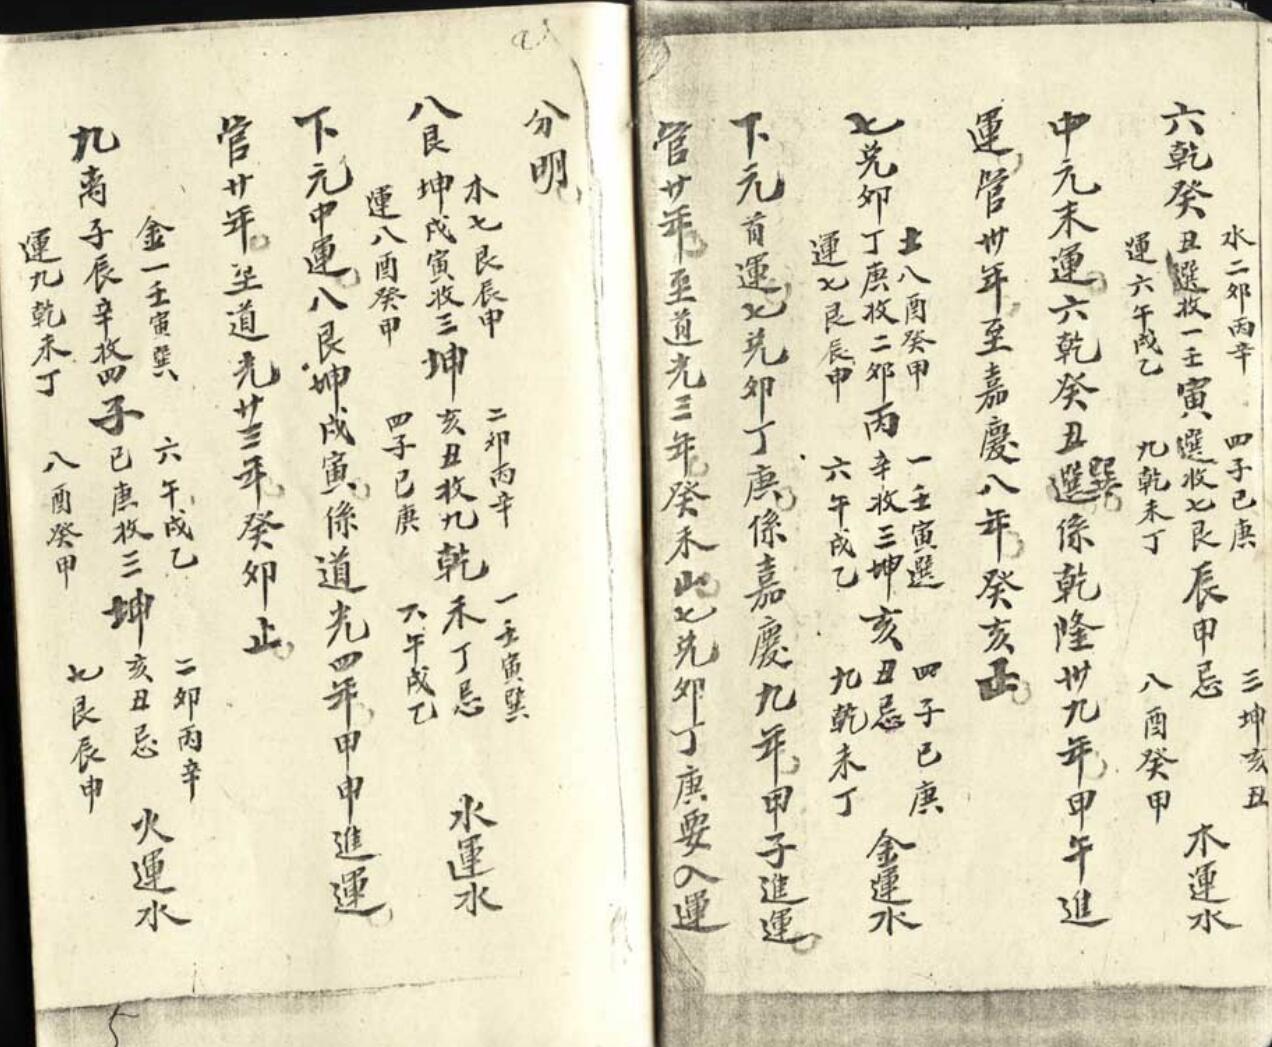 水二卯丙辛 四子巳庚 三坤亥丑
六乾癸丑選收一壬寅選收七艮辰甲忌 木運水
運六午戌乙 九乾未丁 八酉癸甲
中元末運六乾癸丑選巽係乾隆卅九年甲午進
運管卅年至嘉慶八年癸亥止
土八酉癸甲 一壬寅選 四子巳庚
七兌卯丁庚收二卯丙辛收三坤亥丑忌 金運水
運七艮辰申 六午戌乙 九乾未丁
下元首運七兌卯丁庚係嘉慶九年甲子進運
管廿年至道光三年癸未止七兌卯丁庚要入運
分明
木七艮辰申 二卯丙辛 一壬寅巽
八艮坤戌寅收三坤亥丑收九乾未丁忌 水運水
運八酉癸甲 四子巳庚 六午戌乙
下元中運八艮坤戌寅係道光四年甲申進運
管廿年至道光廿三年癸卯止
金一壬寅巽 六午戌乙 二卯丙辛
九离子辰辛收四子巳庚收三坤亥丑忌 火運水
運九乾未丁 八酉癸甲 七艮辰申